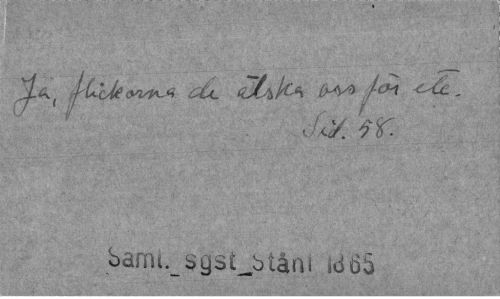 Ja, flickorna de älska oss för etc.
Sid. 58.
Saml._sgst_Ståhl 1865